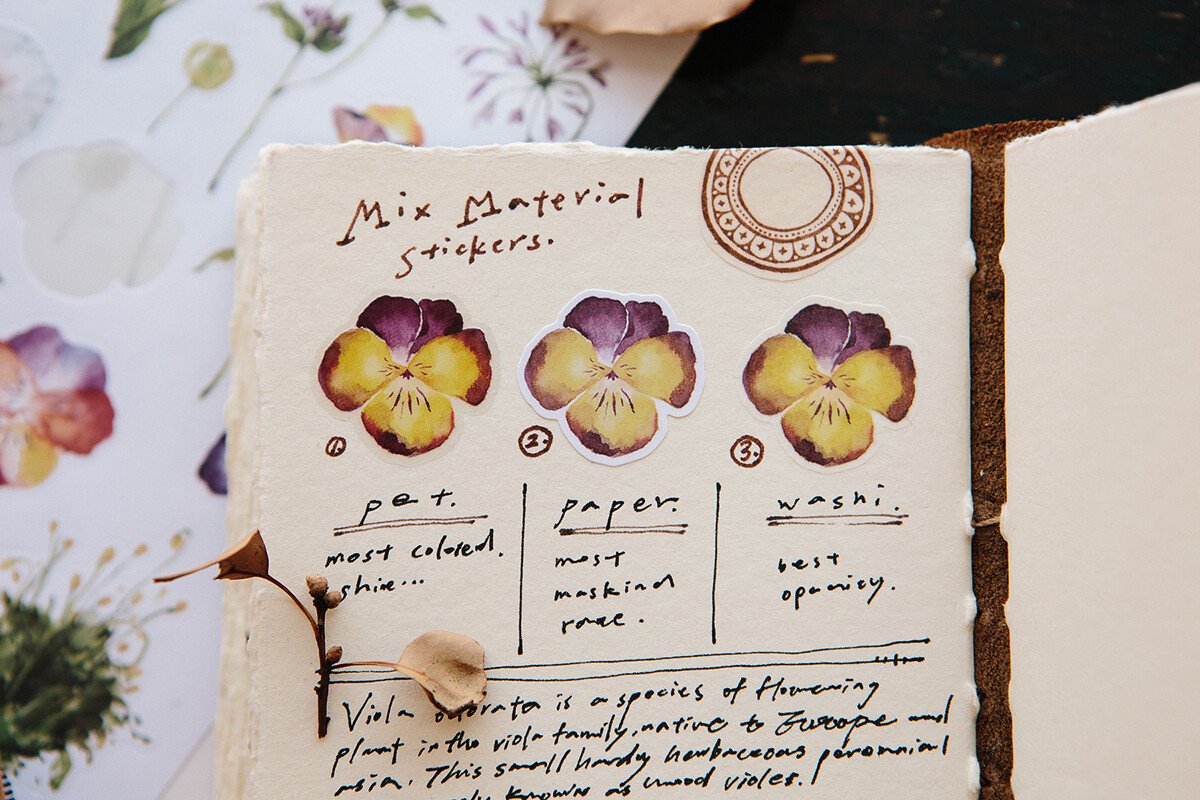 Mix Material
stickers.
1.
2.
3.
pet.
most colored.
shine...
paper.
most
maskind
washi.
best
opanisy.
Viola odorata is a species of flowering
plant in the viola family, native to Europe and
asia. This small hardy herbaceous perennial
known as wood violet.